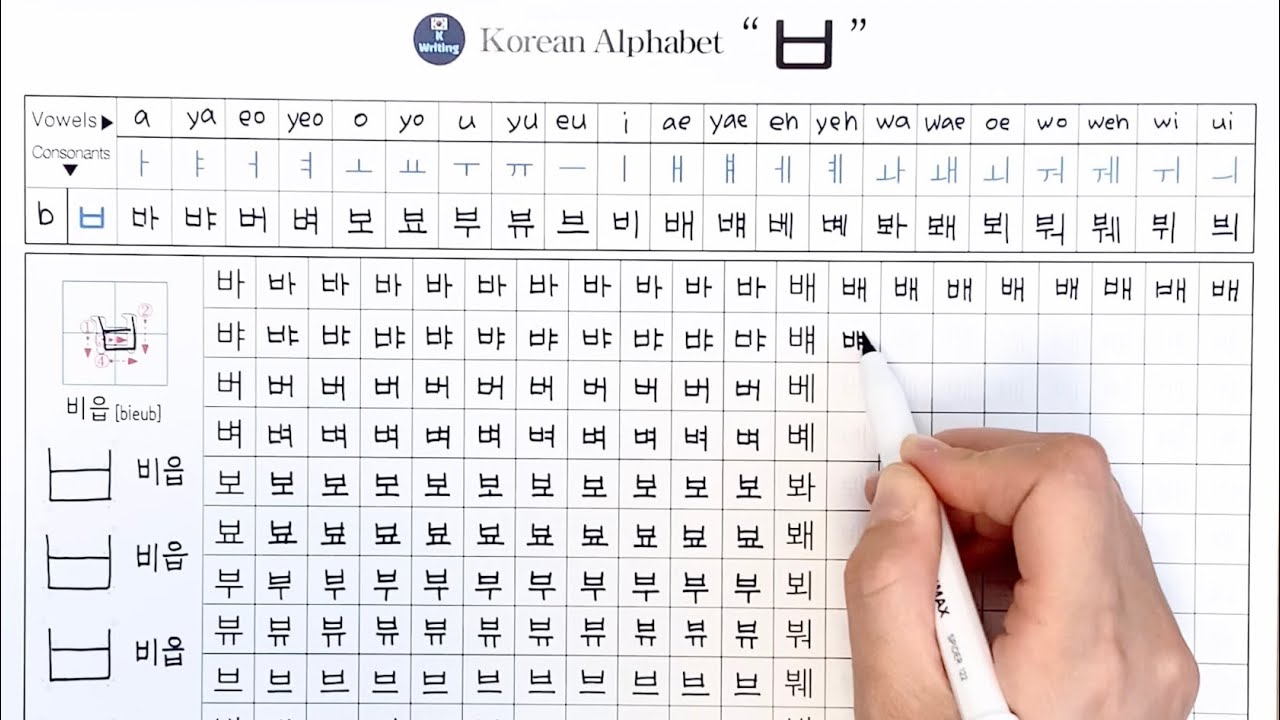 K Writing Korean Alphabet “ ㅂ ”
Vowels▶ a ya eo yeo o yo u yu eu i ae yae eh yeh wa wae oe wo weh wi ui
Consonants▼ ㅏ ㅑ ㅓ ㅕ ㅗ ㅛ ㅜ ㅠ ㅡ ㅣ ㅐ ㅒ ㅔ ㅖ ㅘ ㅙ ㅚ ㅝ ㅞ ㅟ ㅢ
b ㅂ 바 뱌 버 벼 보 뵤 부 뷰 브 비 배 뱨 베 볘 봐 봬 뵈 붜 붸 뷔 븨
바 바 바 바 바 바 바 바 바 바 바 배 배 배 배 배 배 배 배 배
① ② ③ ④
뱌 뱌 뱌 뱌 뱌 뱌 뱌 뱌 뱌 뱌 뱌 뱨 뱨
버 버 버 버 버 버 버 버 버 버 버 베
비읍 [bieub]
벼 벼 벼 벼 벼 벼 벼 벼 벼 벼 벼 볘
ㅂ 비읍 보 보 보 보 보 보 보 보 보 보 보 봐
ㅂ 비읍 뵤 뵤 뵤 뵤 뵤 뵤 뵤 뵤 뵤 뵤 뵤 봬
부 부 부 부 부 부 부 부 부 부 부 뵈
ㅂ 비읍 뷰 뷰 뷰 뷰 뷰 뷰 뷰 뷰 뷰 뷰 뷰 붜
브 브 브 브 브 브 브 브 브 브 브 붸
SPIDER 122